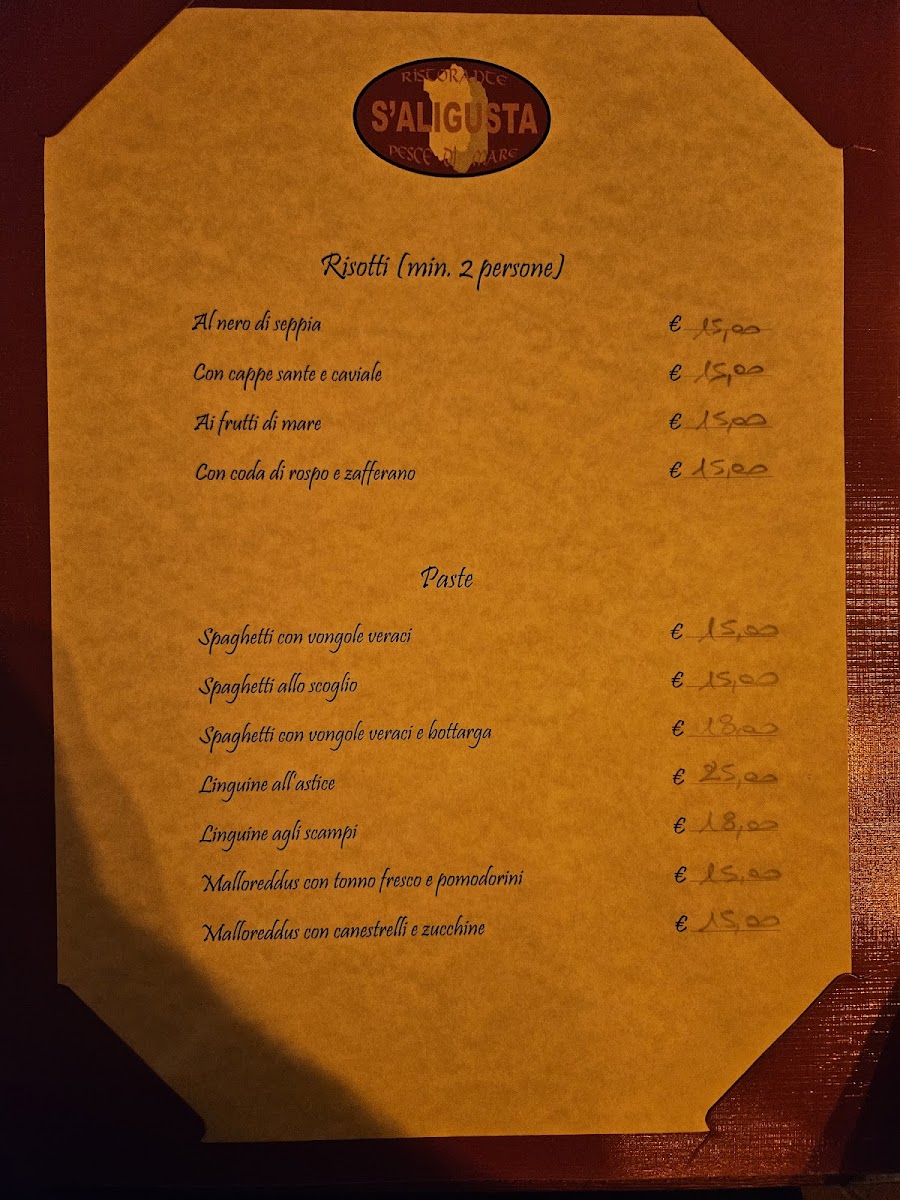 RISTORANTE
S'ALIGUSTA
PESCE DI MARE
Risotti (min. 2 persone)
Al nero di seppia € 15,00
Con cappe sante e caviale € 15,00
Ai frutti di mare € 15,00
Con coda di rospo e zafferano € 15,00
Paste
Spaghetti con vongole veraci € 15,00
Spaghetti allo scoglio € 15,00
Spaghetti con vongole veraci e bottarga € 18,00
Linguine all'astice € 25,00
Linguine agli scampi € 18,00
Malloreddus con tonno fresco e pomodorini € 15,00
Malloreddus con canestrelli e zucchine € 15,00